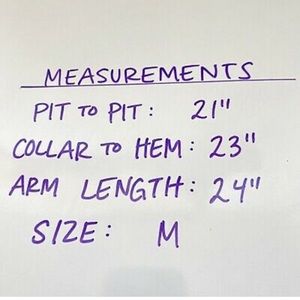 MEASUREMENTS
PIT TO PIT: 21"
COLLAR TO HEM: 23"
ARM LENGTH: 24"
SIZE: M